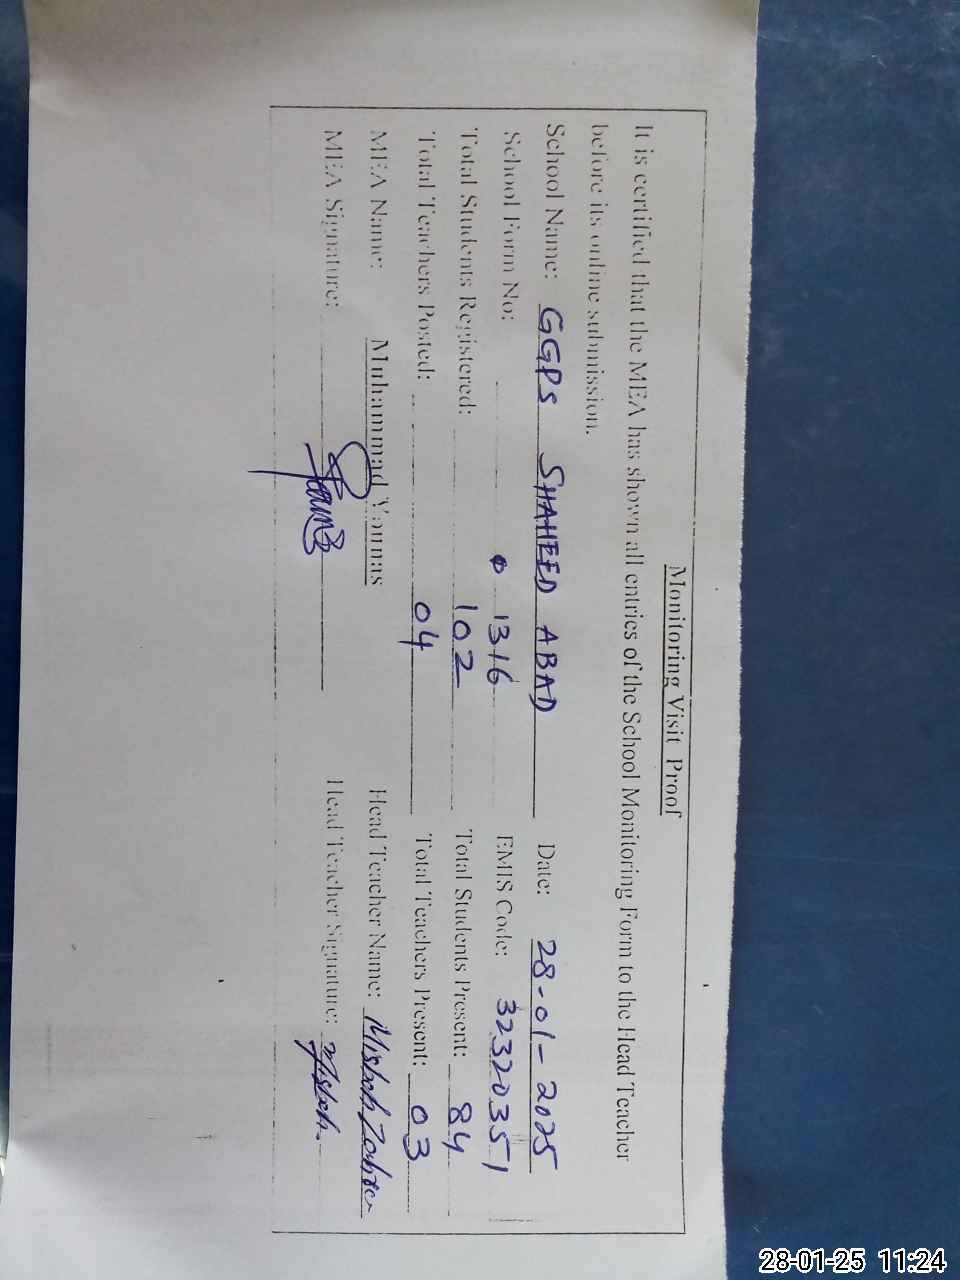 Monitoring Visit Proof
It is certified that the MEA has shown all entries of the School Monitoring Form to the Head Teacher
before its online submission.
School Name: GGPS SHAHEED ABAD Date: 28-01-2025
School Form No: 1316 EMIS Code: 32320351
Total Students Registered: 102 Total Students Present: 84
Total Teachers Posted: 04 Total Teachers Present: 03
MEA Name: Muhammad Younas Head Teacher Name: Misbah Zahra
MEA Signature: Head Teacher Signature: Misbah.
28-01-25 11:24